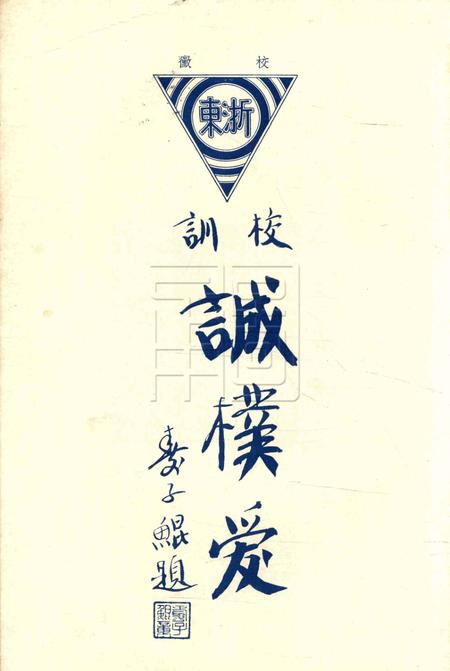 校徽
浙東
校訓
誠樸愛
子鯤題